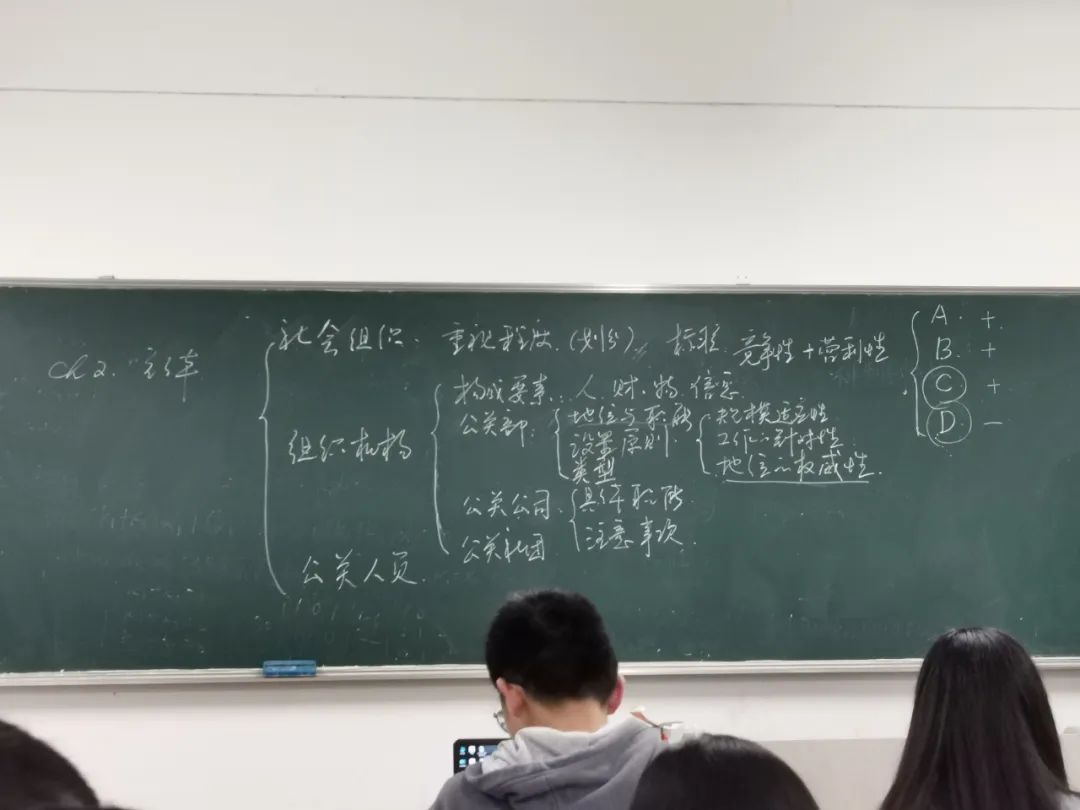 ch 2. 主体
社会组织. 重视程度 (划分) 标准 竞争性 + 营利性
A. +
B. +
C +
D. −
组织机构
构成要素... 人. 财. 物. 信息
公关部:
地位与职能
设置原则
类型
规模适应性
工作的针对性
地位的权威性.
公关公司
公关社团
具体职能
注意事项
公关人员.